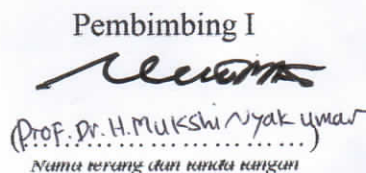 Pembimbing I
(Prof. Dr. H. Mukshi Nyak Umar)
Nama terang dan tanda tangan